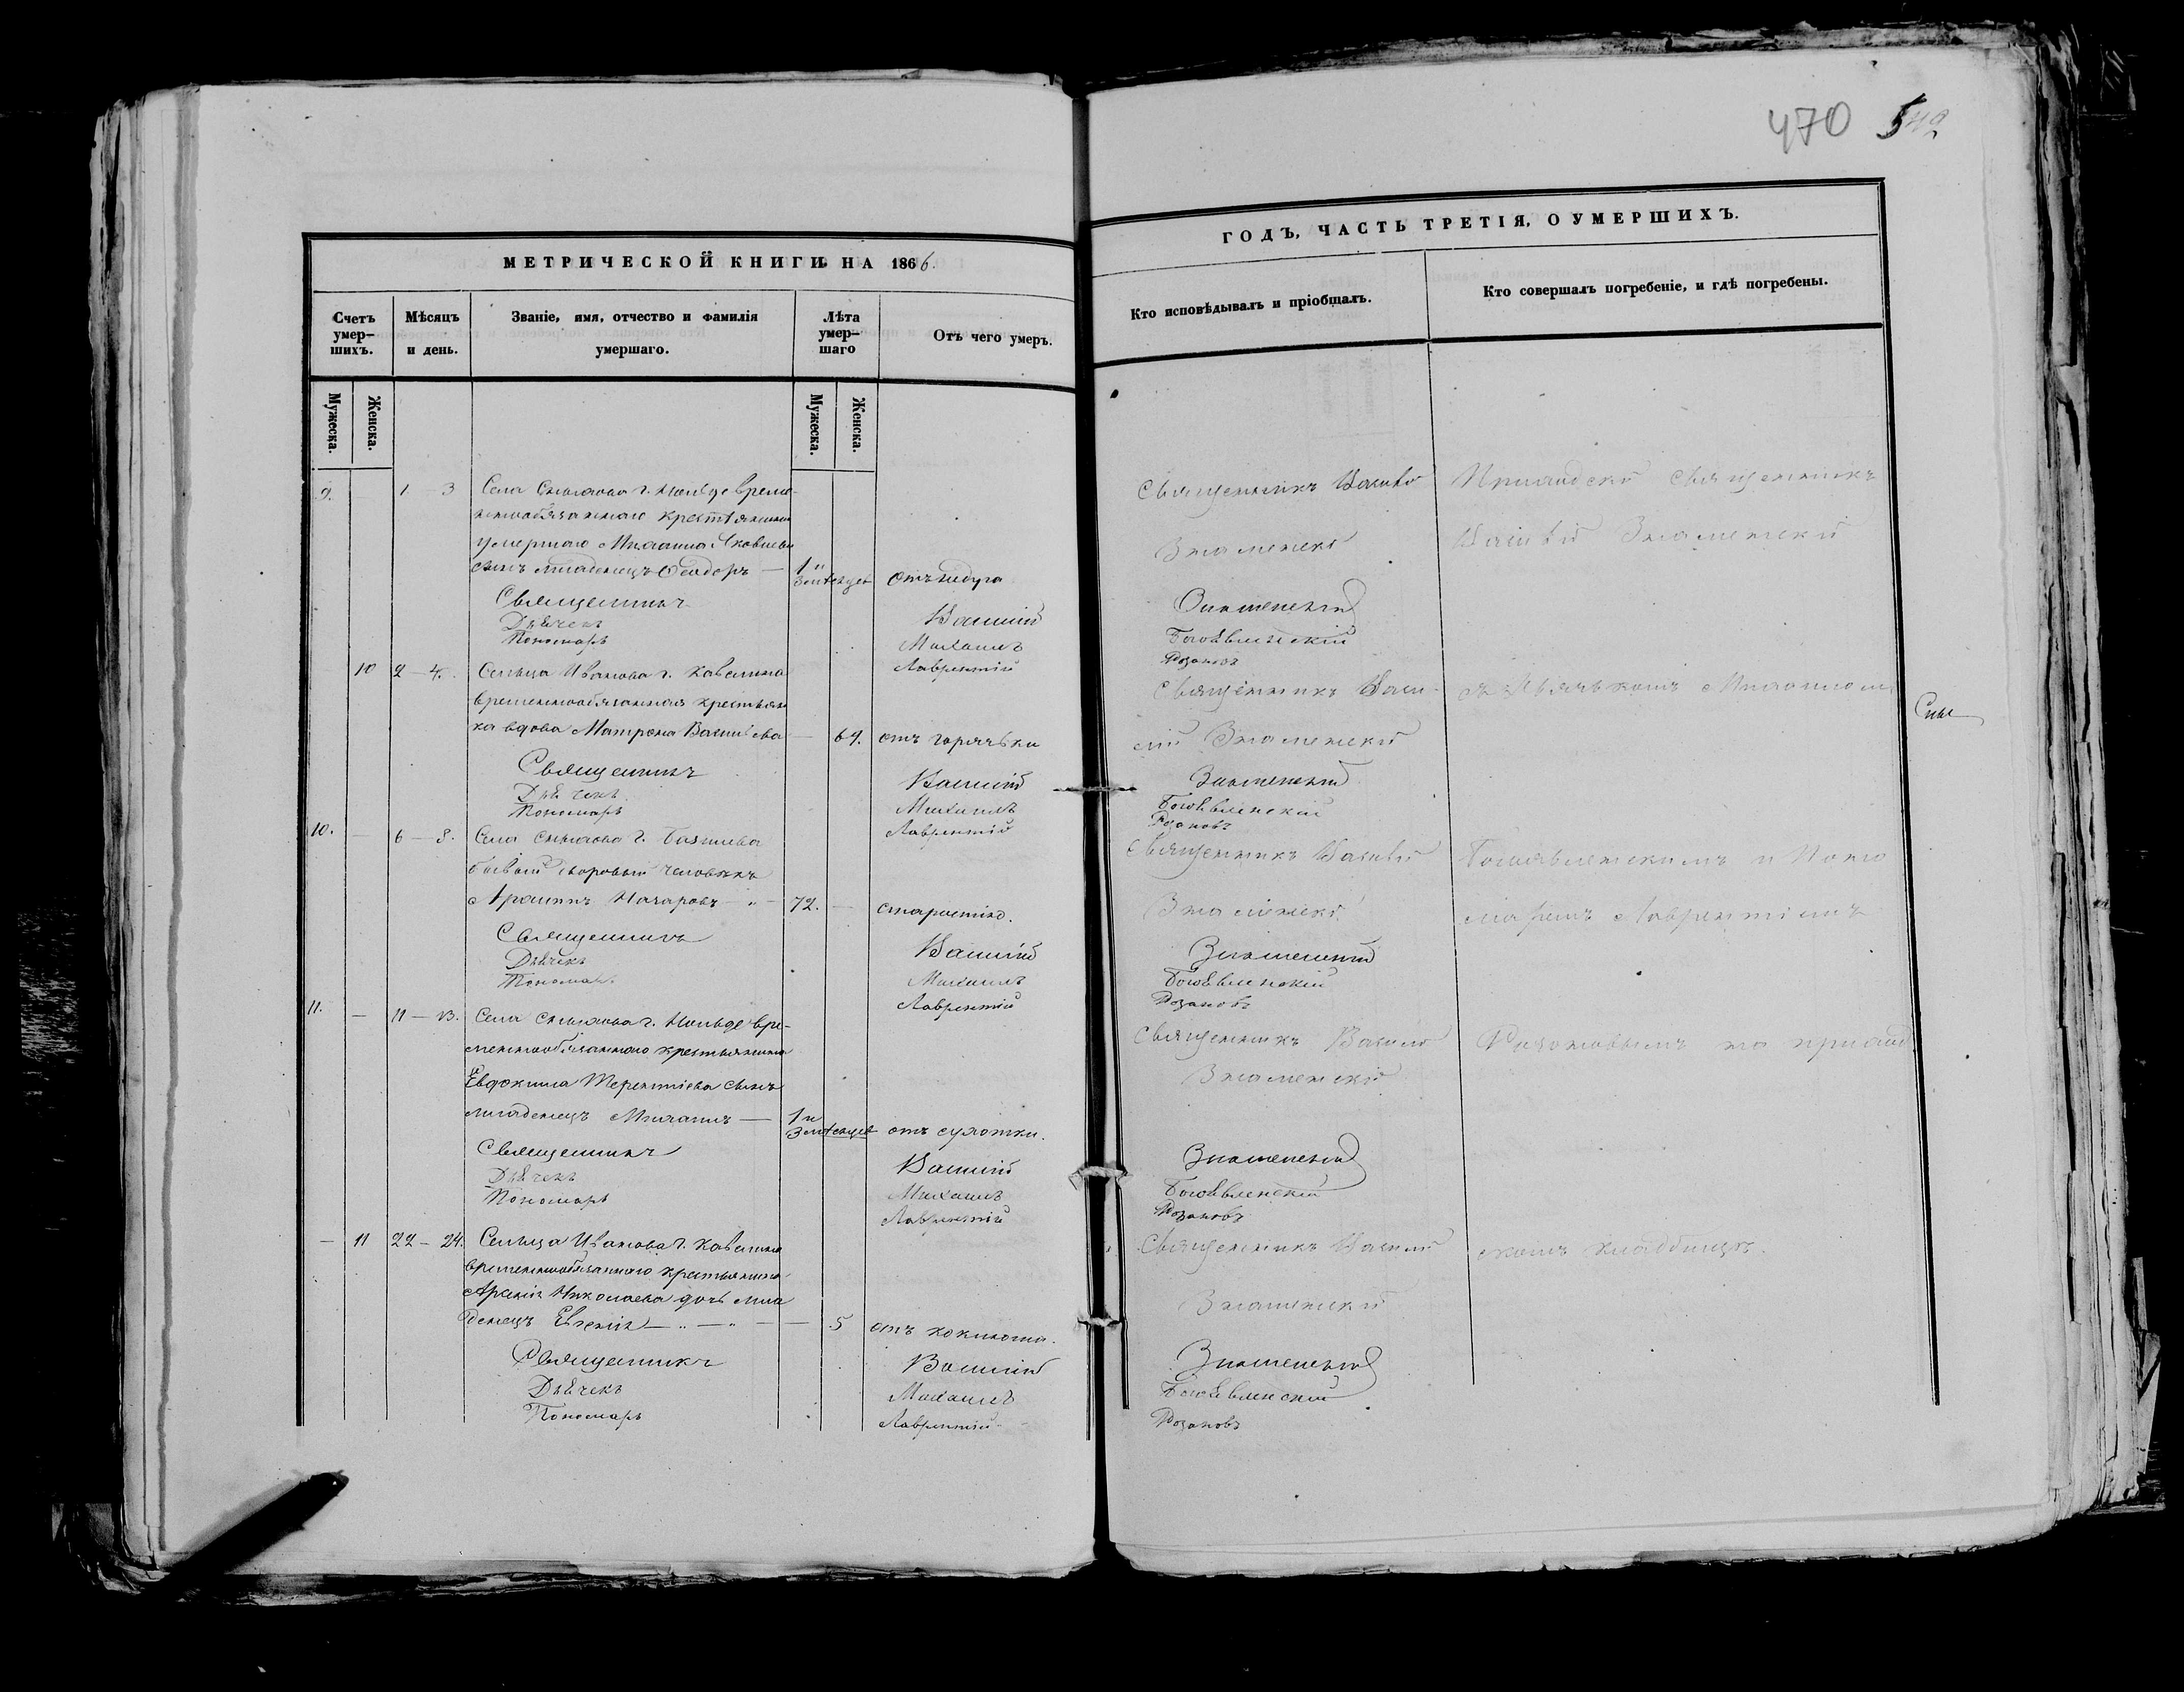 470
МЕТРИЧЕСКОЙ КНИГИ НА 1866.
Счетъ умер-шихъ.
Мѣсяцъ и день.
Званіе, имя, отчество и фамилія умершаго.
Лѣта умер-шаго
Отъ чего умеръ.
Мужеска.
Женска.
Мужеска.
Женска.
9. — 1 — 3 Села г. време-
ннообязаннаго крестьянина
умершаго Михаила Яковлева
сынъ младенецъ Ѳеодоръ — 1 и
3 отъ недуга
Священникъ Василій
Дьячекъ Михаилъ
Пономарь Лаврентій
10 2 — 4. Сельца Иванова г. Кавелина
временнообязанная крестьян
ка вдова Матрона Василіева — 69. отъ горячьки
Священникъ Василій
Дьячекъ Михаилъ
Пономарь Лаврентій
10. — 6 — 8. Села г.
бывшій дворовый человѣкъ
Назаровъ — 72. — старостію.
Священникъ Василій
Дьячекъ Михаилъ
Пономарь Лаврентій
11. — 11 — 13. Села г. вре-
меннообязаннаго крестьянина
Евдокима Терентіева сынъ
младенецъ Михаилъ — 1 и
3 отъ сухотки.
Священникъ Василій
Дьячекъ Михаилъ
Пономарь Лаврентій
— 11 22 — 24. Сельца Иванова г. Кавелина
временнообязаннаго крестьянина
Арсенія Николаева дочь мла
денецъ Евгенія — 5 отъ коклюша.
Священникъ Василій
Дьячекъ Михаилъ
Пономарь Лаврентій
ГОДЪ, ЧАСТЬ ТРЕТІЯ, О УМЕРШИХЪ.
Кто исповѣдывалъ и пріобщалъ.
Кто совершалъ погребеніе, и гдѣ погребены.
Священникъ Василій
Знаменскій
Знаменскій
Богоявленскій
Розановъ
Священникъ Васи-
лій Знаменскій
Знаменскій
Богоявленскій
Розановъ
Священникъ Василій
Знаменскій
Знаменскій
Богоявленскій
Розановъ
Священникъ Василій
Знаменскій
Знаменскій
Богоявленскій
Розановъ
Священникъ Василій
Знаменскій
Знаменскій
Богоявленскій
Розановъ
Приходскій священникъ
Василій Знаменскій
съ Дьячькомъ Михаиломъ
Богоявленскимъ и Поно
маремъ Лаврентіемъ
Розановымъ на приход
скомъ кладбищѣ.